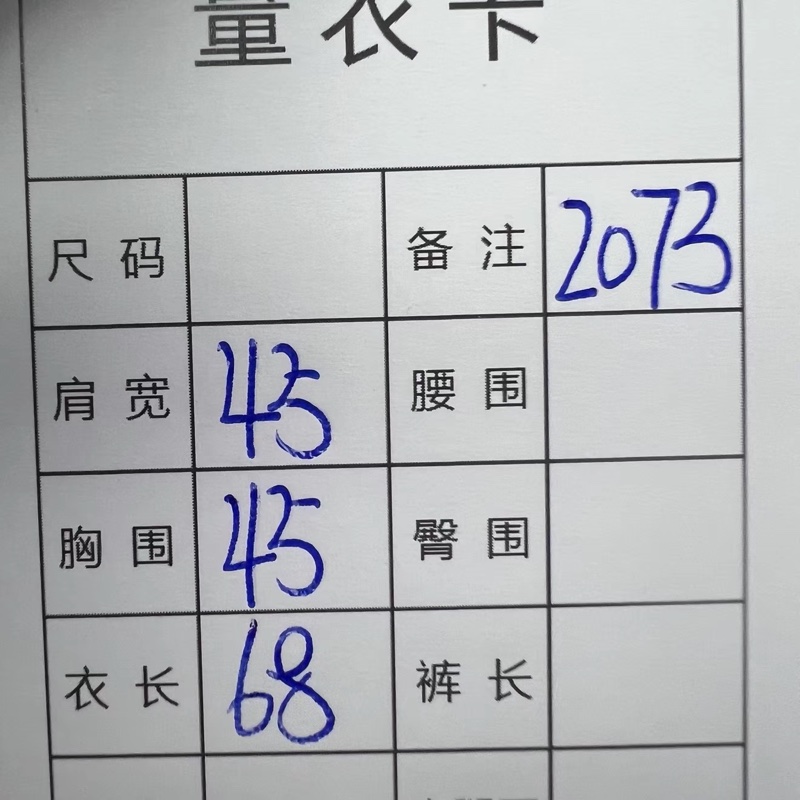 量衣卡
尺码 备注 2073
肩宽 45 腰围
胸围 45 臀围
衣长 68 裤长